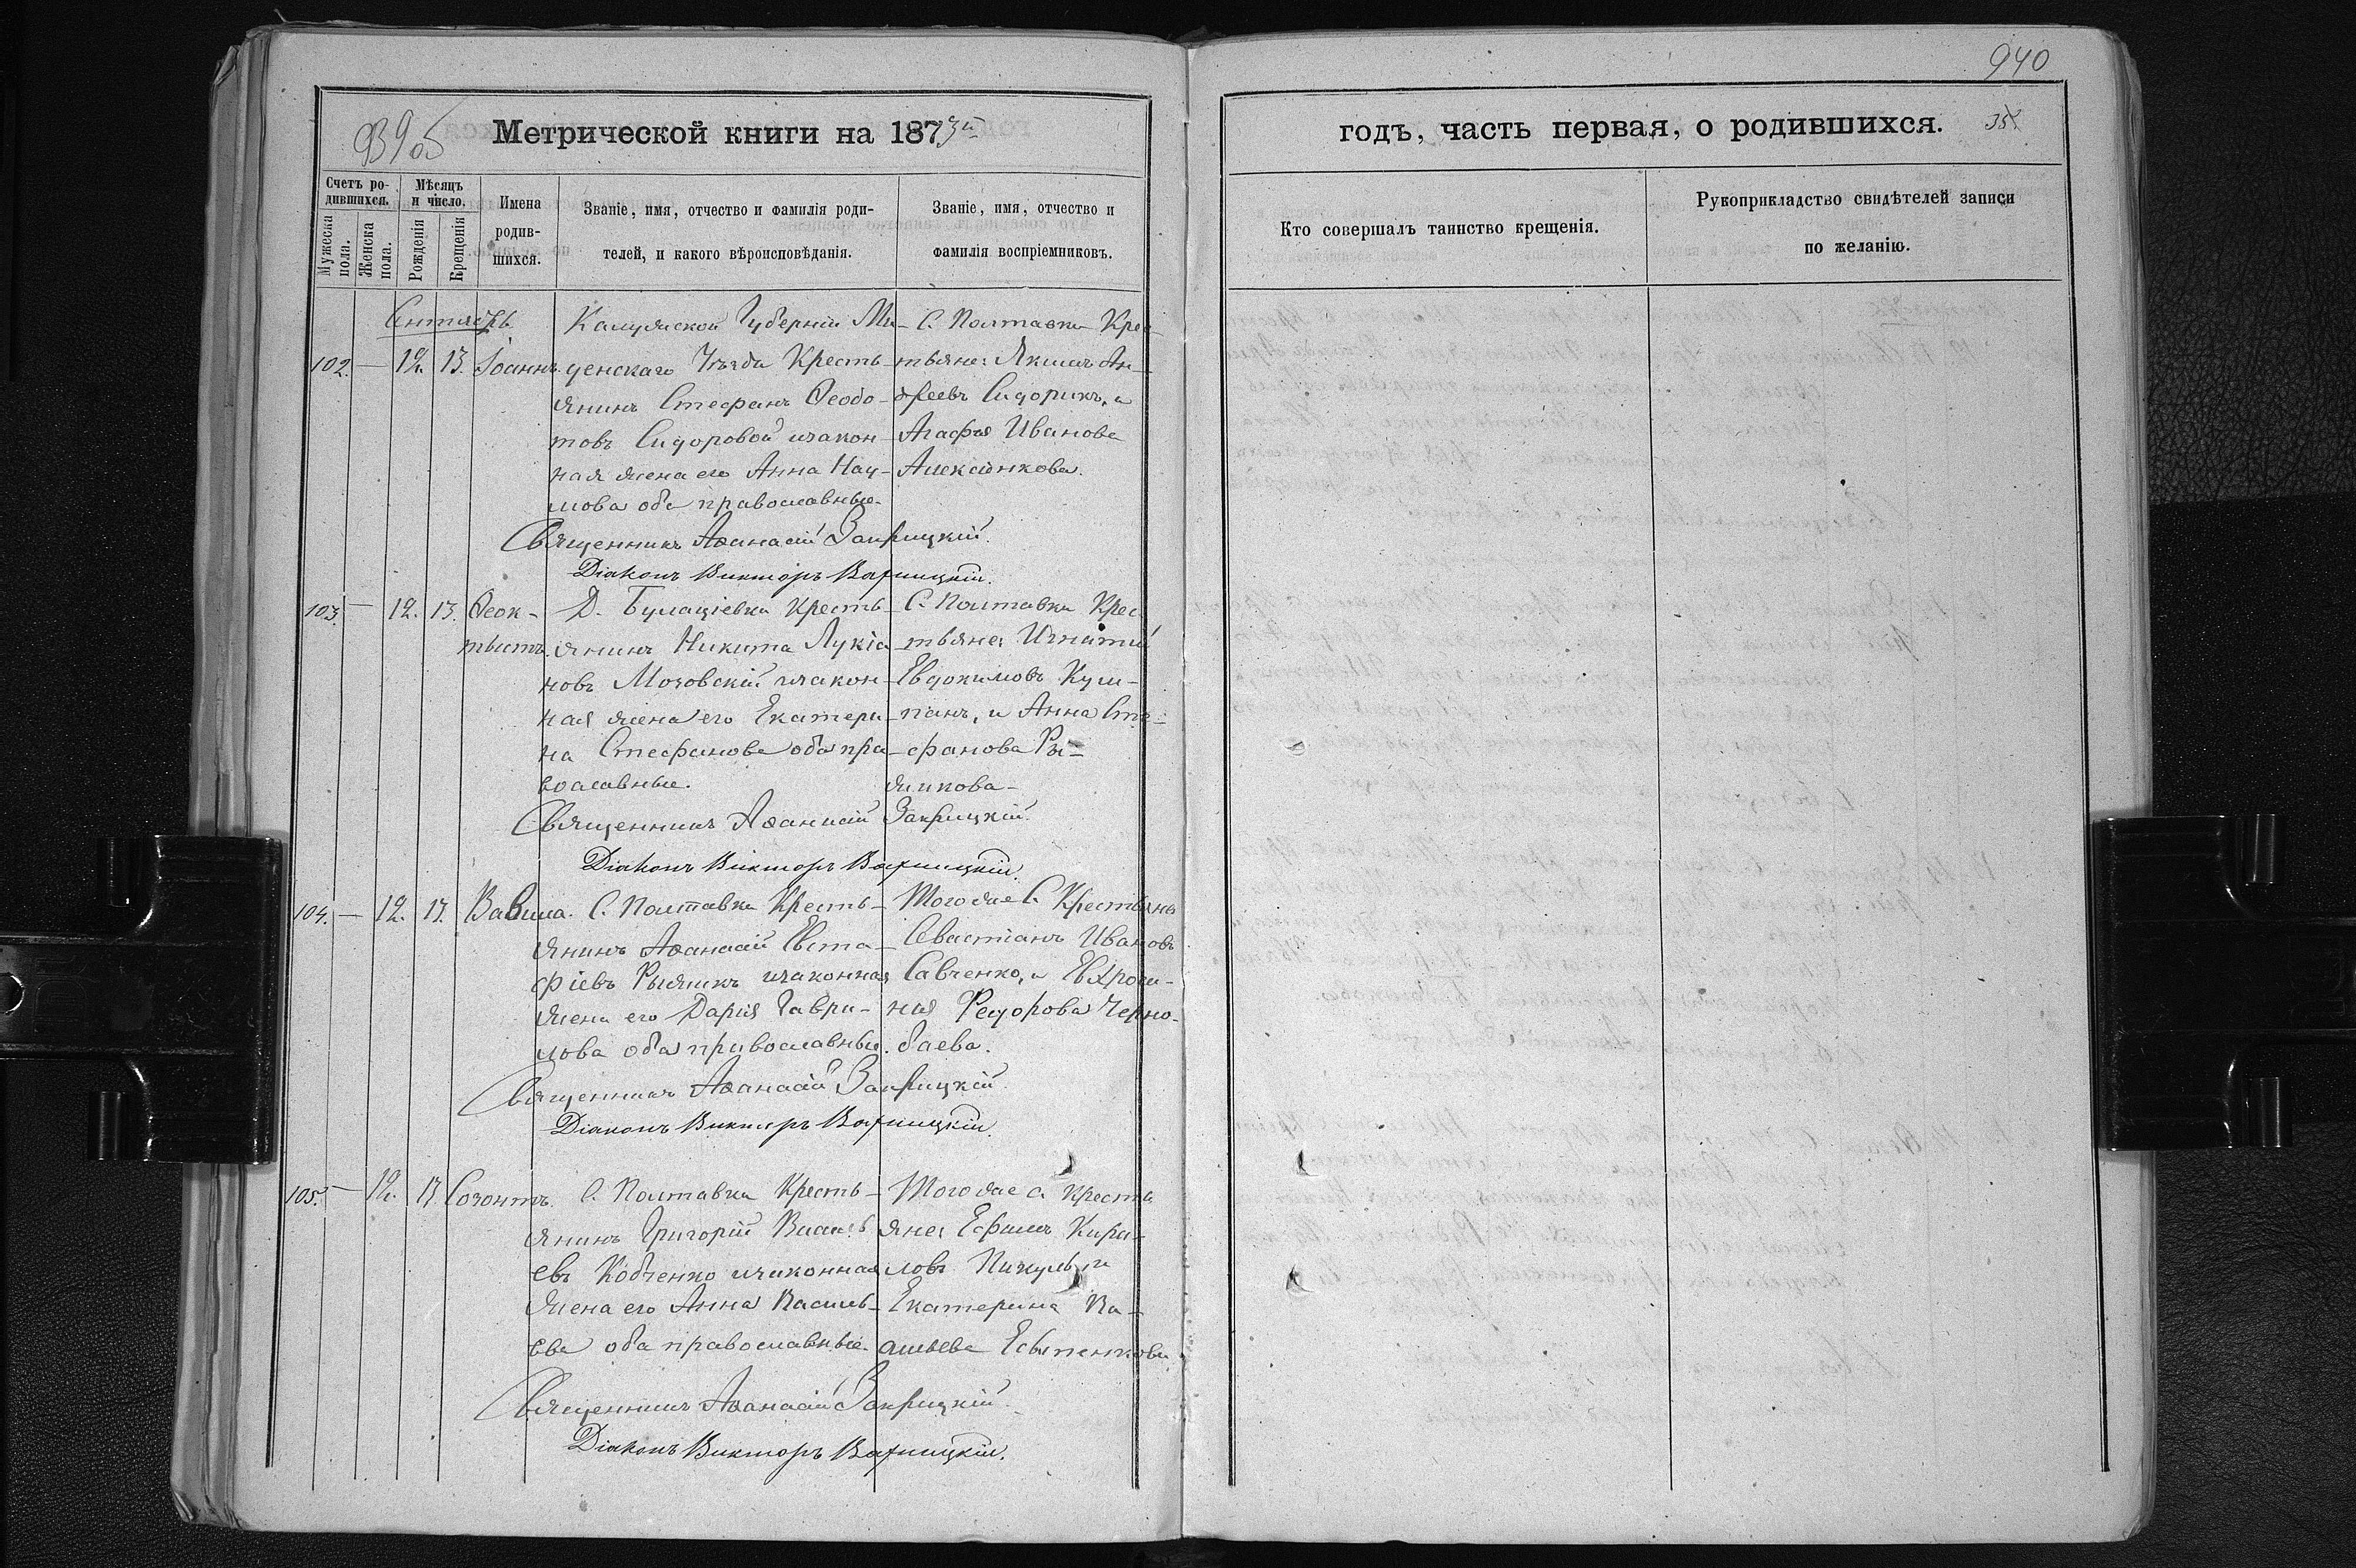 940
939 об
Метрической книги на 1873й
годъ, часть первая, о родившихся.
Счетъ ро-
дившихся.
Мужеска пола.
Женска пола.
Мѣсяцъ
и число.
Рожденія
Крещенія
Имена
родив-
шихся.
Званіе, имя, отчество и фамилія роди-
телей, и какого вѣроисповѣданія.
Званіе, имя, отчество и
фамилія воспріемниковъ.
Кто совершалъ таинство крещенія.
Рукоприкладство свидѣтелей записи
по желанію.
Сентябрь
102. — 12. 13. Іоаннъ.
Калужской Губерніи Ми-
ценскаго Уѣзда Кресть-
янинъ Стефанъ Ѳеодо-
товъ Сидоровой изакон-
ная жена его Анна Нау-
мова оба православные.
С. Полтавки Крес-
тьяне: Якимъ Ан-
дреевъ Сидорикъ, и
Агафія Иванова
Алексѣнкова.
Священникъ Аѳанасій Закрицкій.
Діаконъ Викторъ Варницкій.
103. — 12. 13. Ѳеок-
тистъ.
Д. Булацѣевки Кресть-
янинъ Никита Лукіа-
новъ Мозовскій изакон-
ная жена его Екатери-
на Стефанова оба пра-
вославные.
С. Полтавки Крес-
тьяне: Игнатій
Евдокимовъ Кули-
панъ, и Анна Сте-
фанова Ры-
жикова
Священникъ Аѳанасій Закрицкій.
Діаконъ Викторъ Варницкій.
104. — 12. 13. Вавила.
С. Полтавки Кресть-
янинъ Аѳанасій Евста-
фіевъ Рыжикъ изаконная
жена его Дарія Гаври-
лова оба православные.
Тогоже С. Крестьяне
Севастіанъ Ивановъ
Савченко, и Евфроси-
нія Федорова Черно-
баева.
Священникъ Аѳанасій Закрицкій
Діаконъ Викторъ Варницкій.
105. — 12. 13. Созонтъ.
С. Полтавки Кресть-
янинъ Григорій Влась-
евъ Кобченко изаконная
жена его Анна Василь-
ева оба православные.
Тогоже С. Кресть
яне: Ефимъ Кири-
ловъ Пикуль, и
Екатерина Ва-
сильева Есыпенкова
Священникъ Аѳанасій Закрицкій
Діаконъ Викторъ Варницкій.